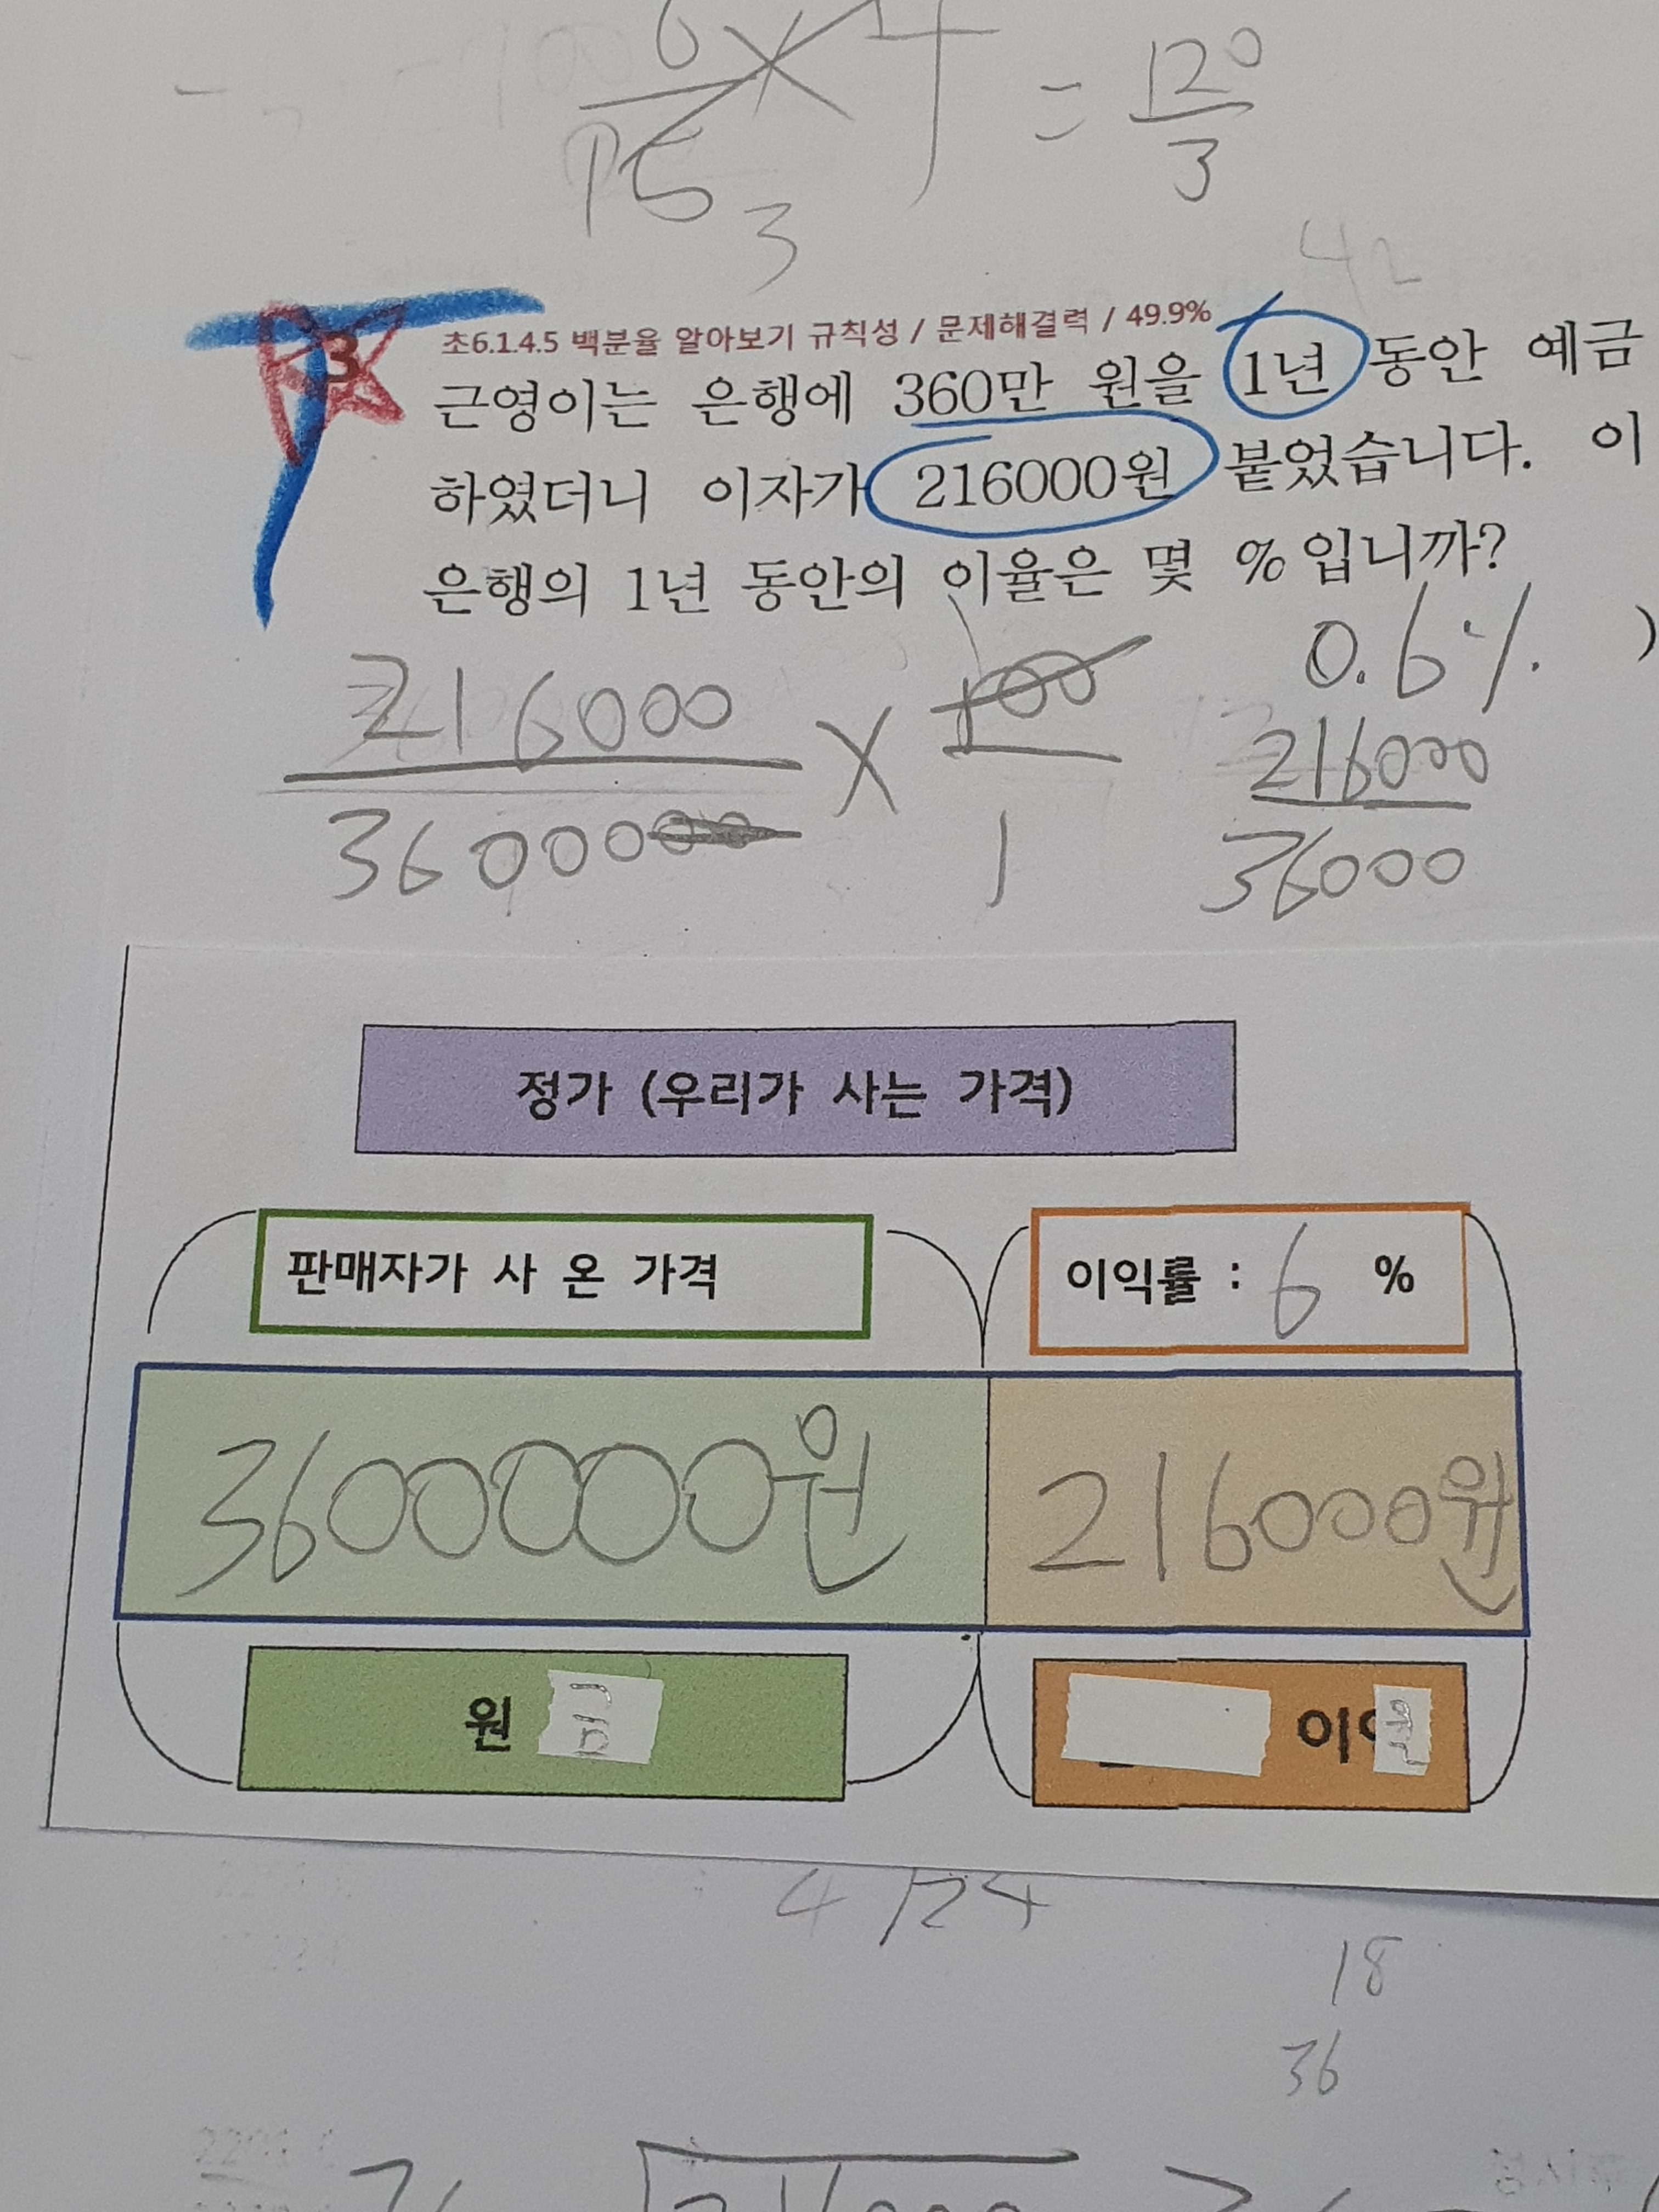 6/15 × 4 = 120/3
3
42
3
초6.1.4.5 백분율 알아보기 규칙성 / 문제해결력 / 49.9%
근영이는 은행에 360만 원을 1년 동안 예금
하였더니 이자가 216000원 붙었습니다. 이
은행의 1년 동안의 이율은 몇 %입니까?
0.6% )
216000/3600000 × 100/1
216000/36000
정가 (우리가 사는 가격)
판매자가 사 온 가격
이익률 : 6 %
3600000원
216000원
원금
이율
4 /24
18
36